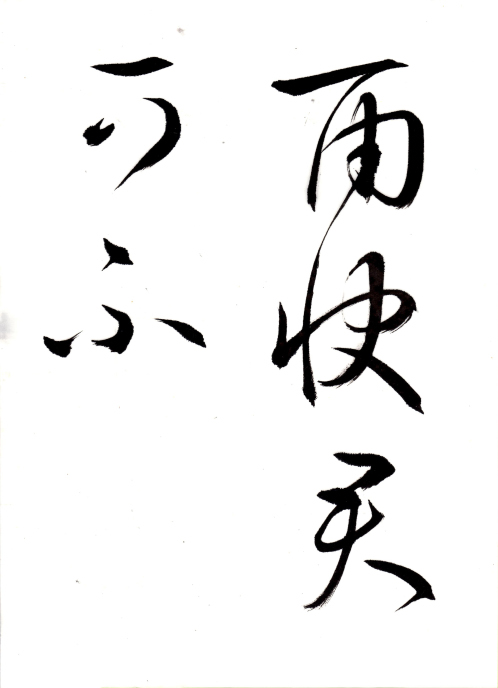 雨快天
可不